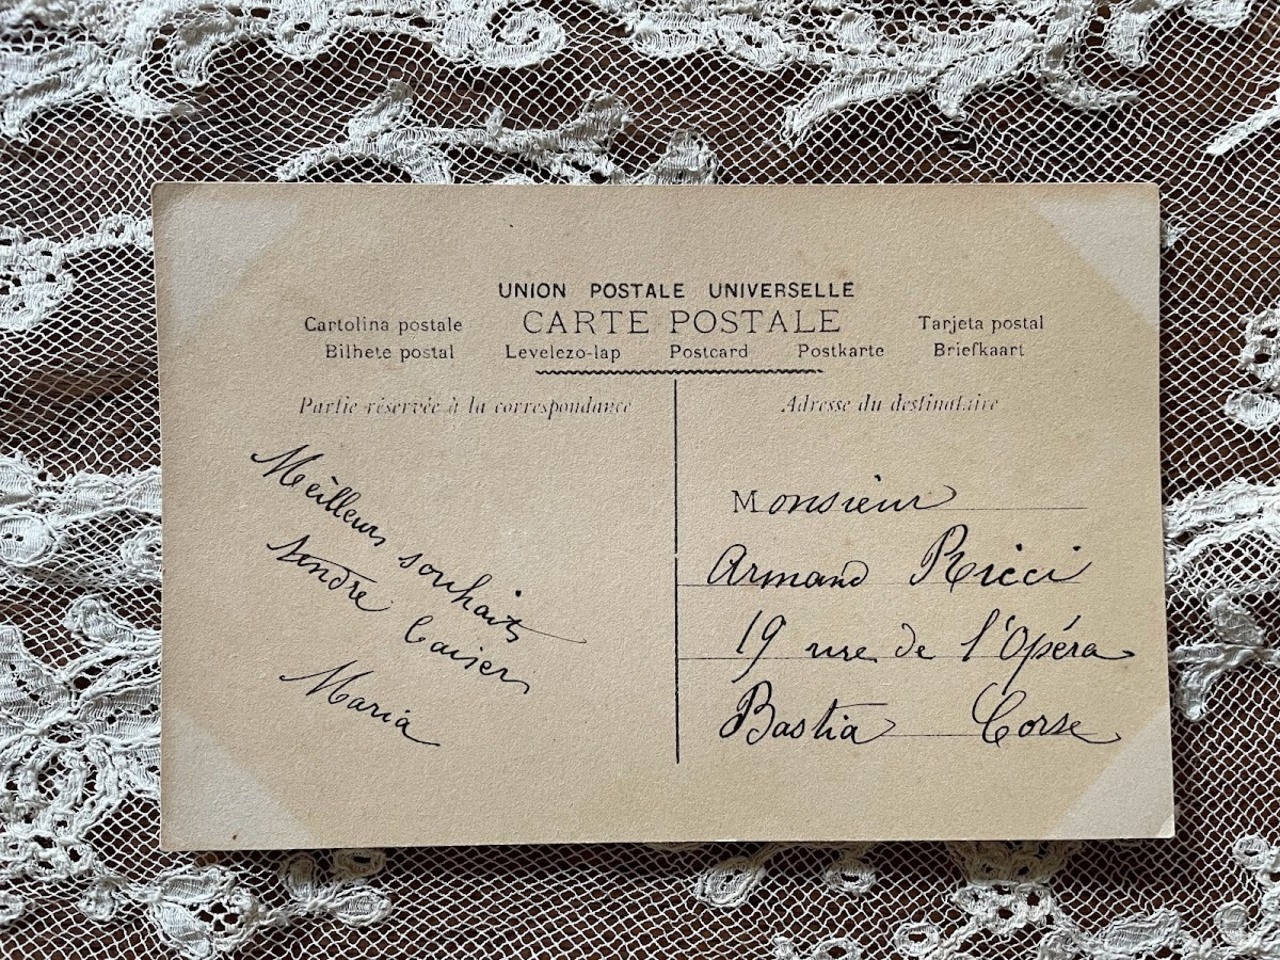 UNION POSTALE UNIVERSELLE
CARTE POSTALE
Cartolina postale
Tarjeta postal
Bilhete postal Levelezo-lap Postcard Postkarte Briefkaart
Partie réservée à la correspondance
Adresse du destinataire
Meilleurs souhaits
tendre baiser
Maria
Monsieur
Armand Ricci
19 rue de l'Opéra
Bastia Corse